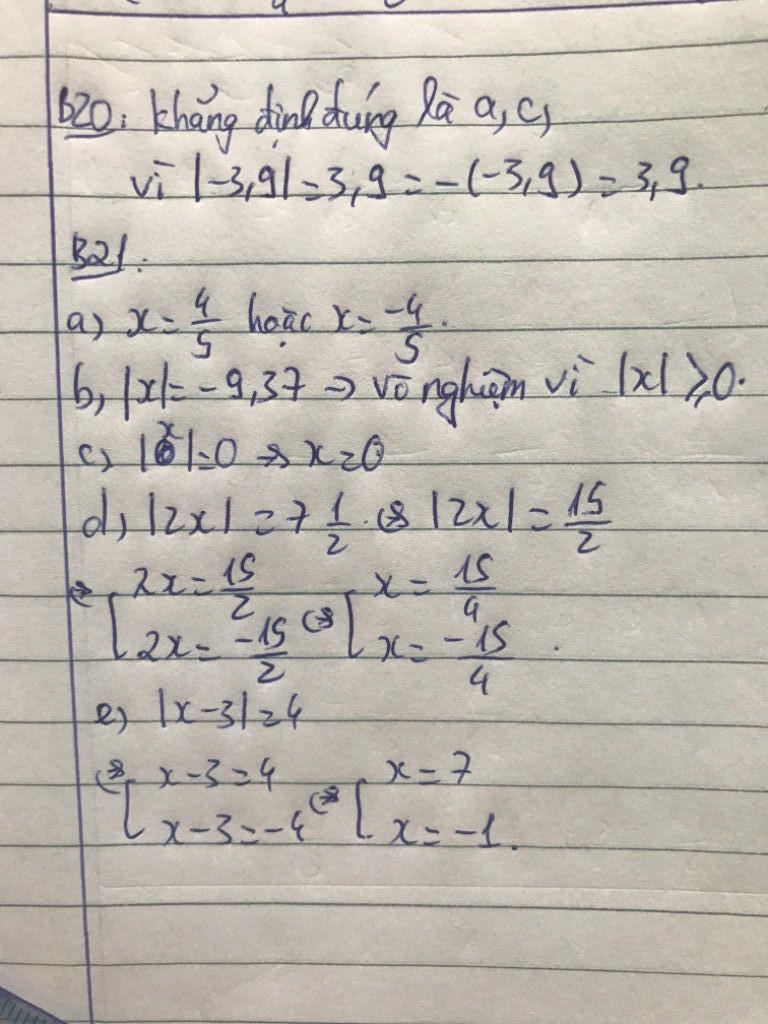 B20: khẳng định đứng là a, c,
vì |-3,9| = 3,9 = -(-3,9) = 3,9.
B21:
a) x = 4/5 hoặc x = -4/5.
b, |x| = -9,37 → vô nghiệm vì |x| ≥ 0.
c) |x| = 0 ⇔ x = 0
d, |2x| = 7 1/2 ⇔ |2x| = 15/2
⇔ [ 2x = 15/2 ⇔ [ x = 15/4
2x = -15/2 x = -15/4 .
e) |x-3| = 4
⇔ [ x-3 = 4 ⇔ [ x = 7
x-3 = -4 x = -1.